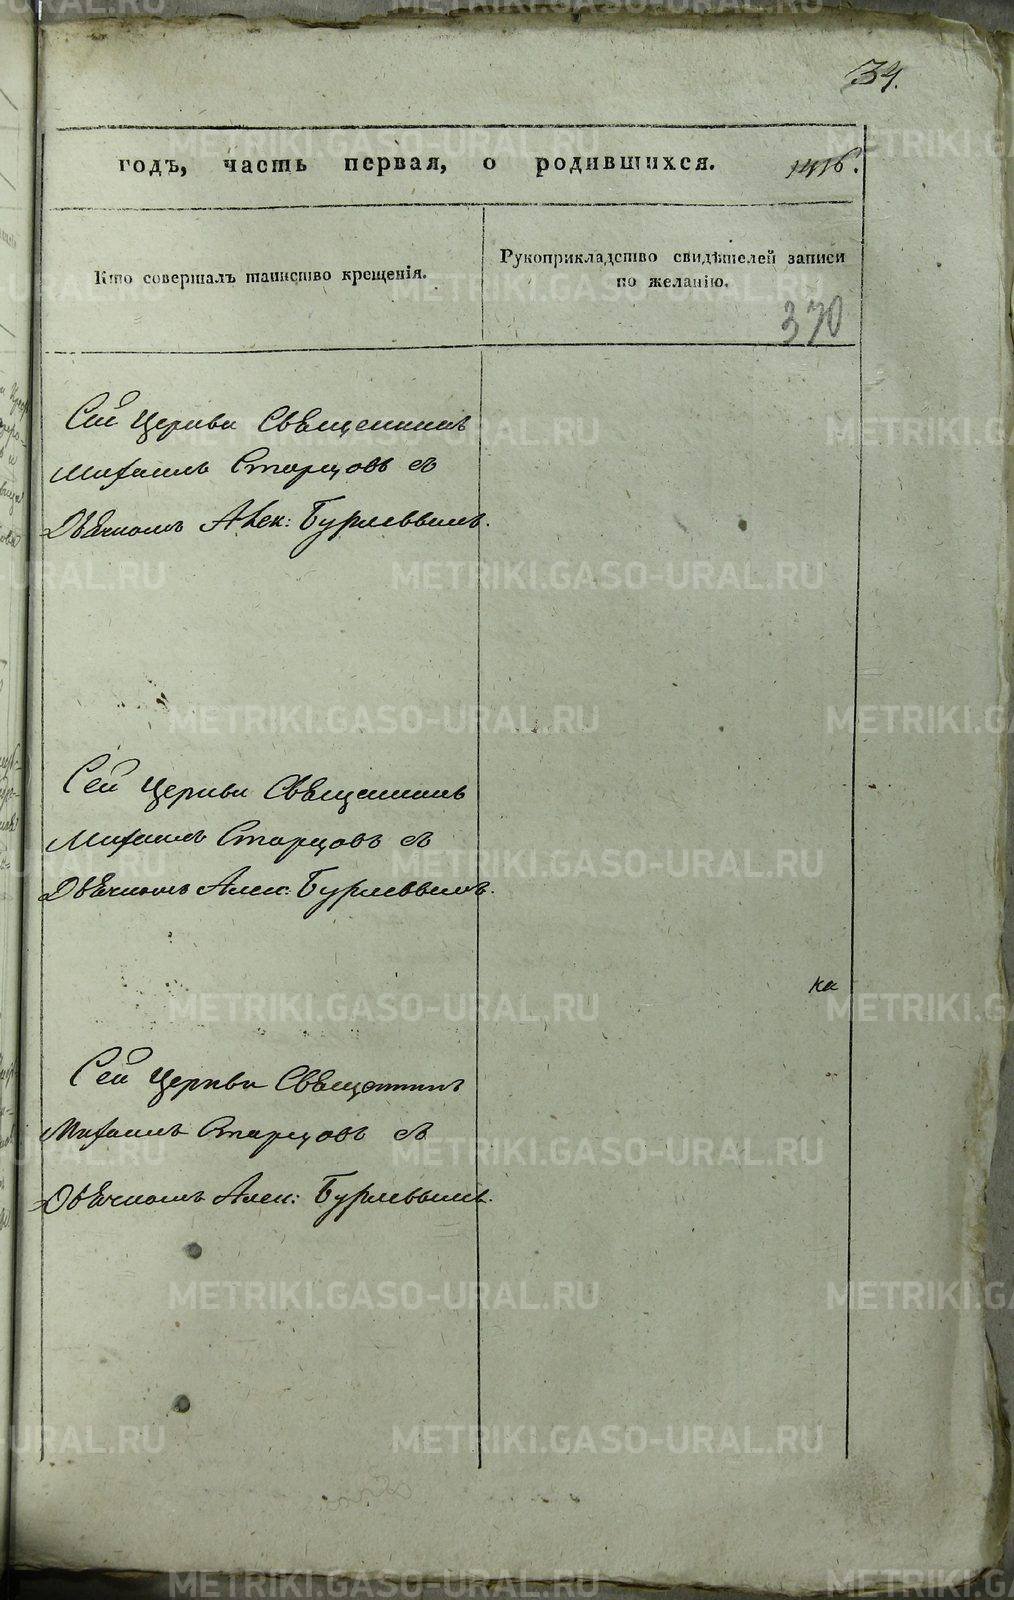 34.
годъ, часть первая, о родившихся.
Кто совершалъ таинство крещенія.
Рукоприкладство свидѣтелей записи
по желанію.
370
Сей Церкви Священникъ
Михаилъ Старцовъ съ
Дьячкомъ Алек: Бурлевымъ.
Сей Церкви Священникъ
Михаилъ Старцовъ съ
Дьячкомъ Алек: Бурлевымъ.
ка
Сей Церкви Священникъ
Михаилъ Старцовъ съ
Дьячкомъ Алек: Бурлевымъ.
METRIKI.GASO-URAL.RU